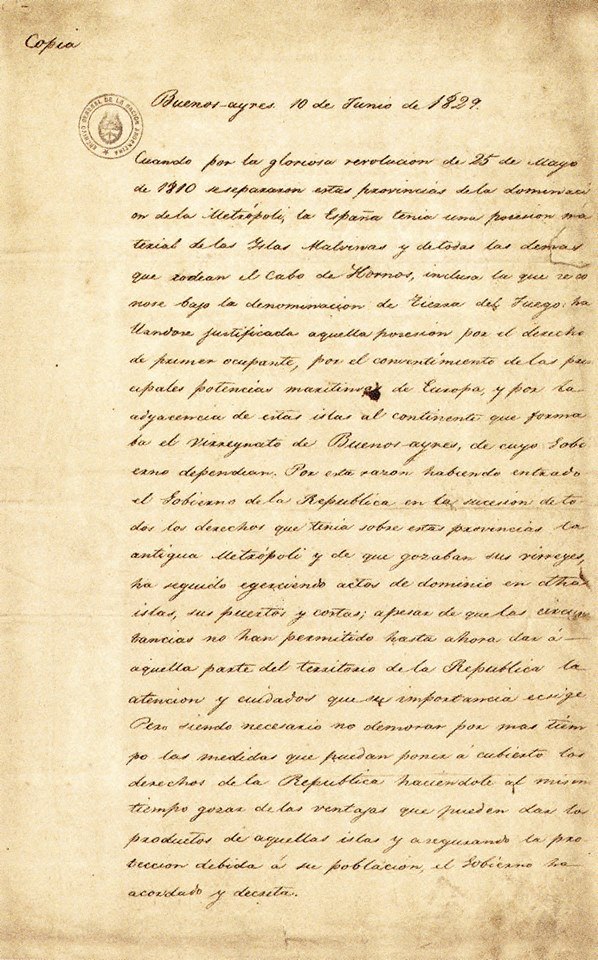 Copia
ARCHIVO GENERAL DE LA NACION ARGENTINA
Buenos-ayres 10 de Junio de 1829.
Cuando por la gloriosa revolucion de 25 de Mayo
de 1810 se separaron estas provincias de la dominaci
on de la Metrópoli, la España tenia una posesion ma
terial de las Islas Malvinas y de todas las demas
que rodean el Cabo de Hornos, inclusa la que se co
nose bajo la denominacion de Tierra del Fuego: ha
llandose justificada aquella posesion por el derecho
de primer ocupante, por el consentimiento de las prin
cipales potencias maritimas de Europa, y por la
adyacencia de estas islas al continente que forma
ba el Virreynato de Buenos-ayres, de cuyo Gobi
erno dependian. Por esta razon habiendo entrado
el Gobierno de la Republica en la sucesion de to
dos los derechos que tenia sobre estas provincias la
antigua Metrópoli y de que gozaban sus virreyes,
ha seguido egerciendo actos de dominio en dchas
islas, sus puertos y costas; apesar de que las circuns
tancias no han permitido hasta ahora dar á
aquella parte del territorio de la Republica la
atencion y cuidados que su importancia ecsige
Pero siendo necesario no demorar por mas tiem
po las medidas que puedan poner á cubierto los
derechos de la Republica haciendole al mismo
tiempo gozar de las ventajas que pueden dar los
productos de aquellas islas y asegurando la pro
teccion debida á su poblacion, el Gobierno ha
acordado y decreta.